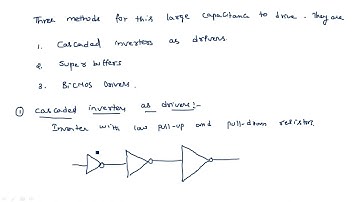 Three methods for this large capacitance to drive. They are
1. Cascaded inverters as drivers.
2. Super buffers
3. BiCMOS Drivers.
① Cascaded inverters as drivers:-
Inverter with low pull-up and pull-down resistor.